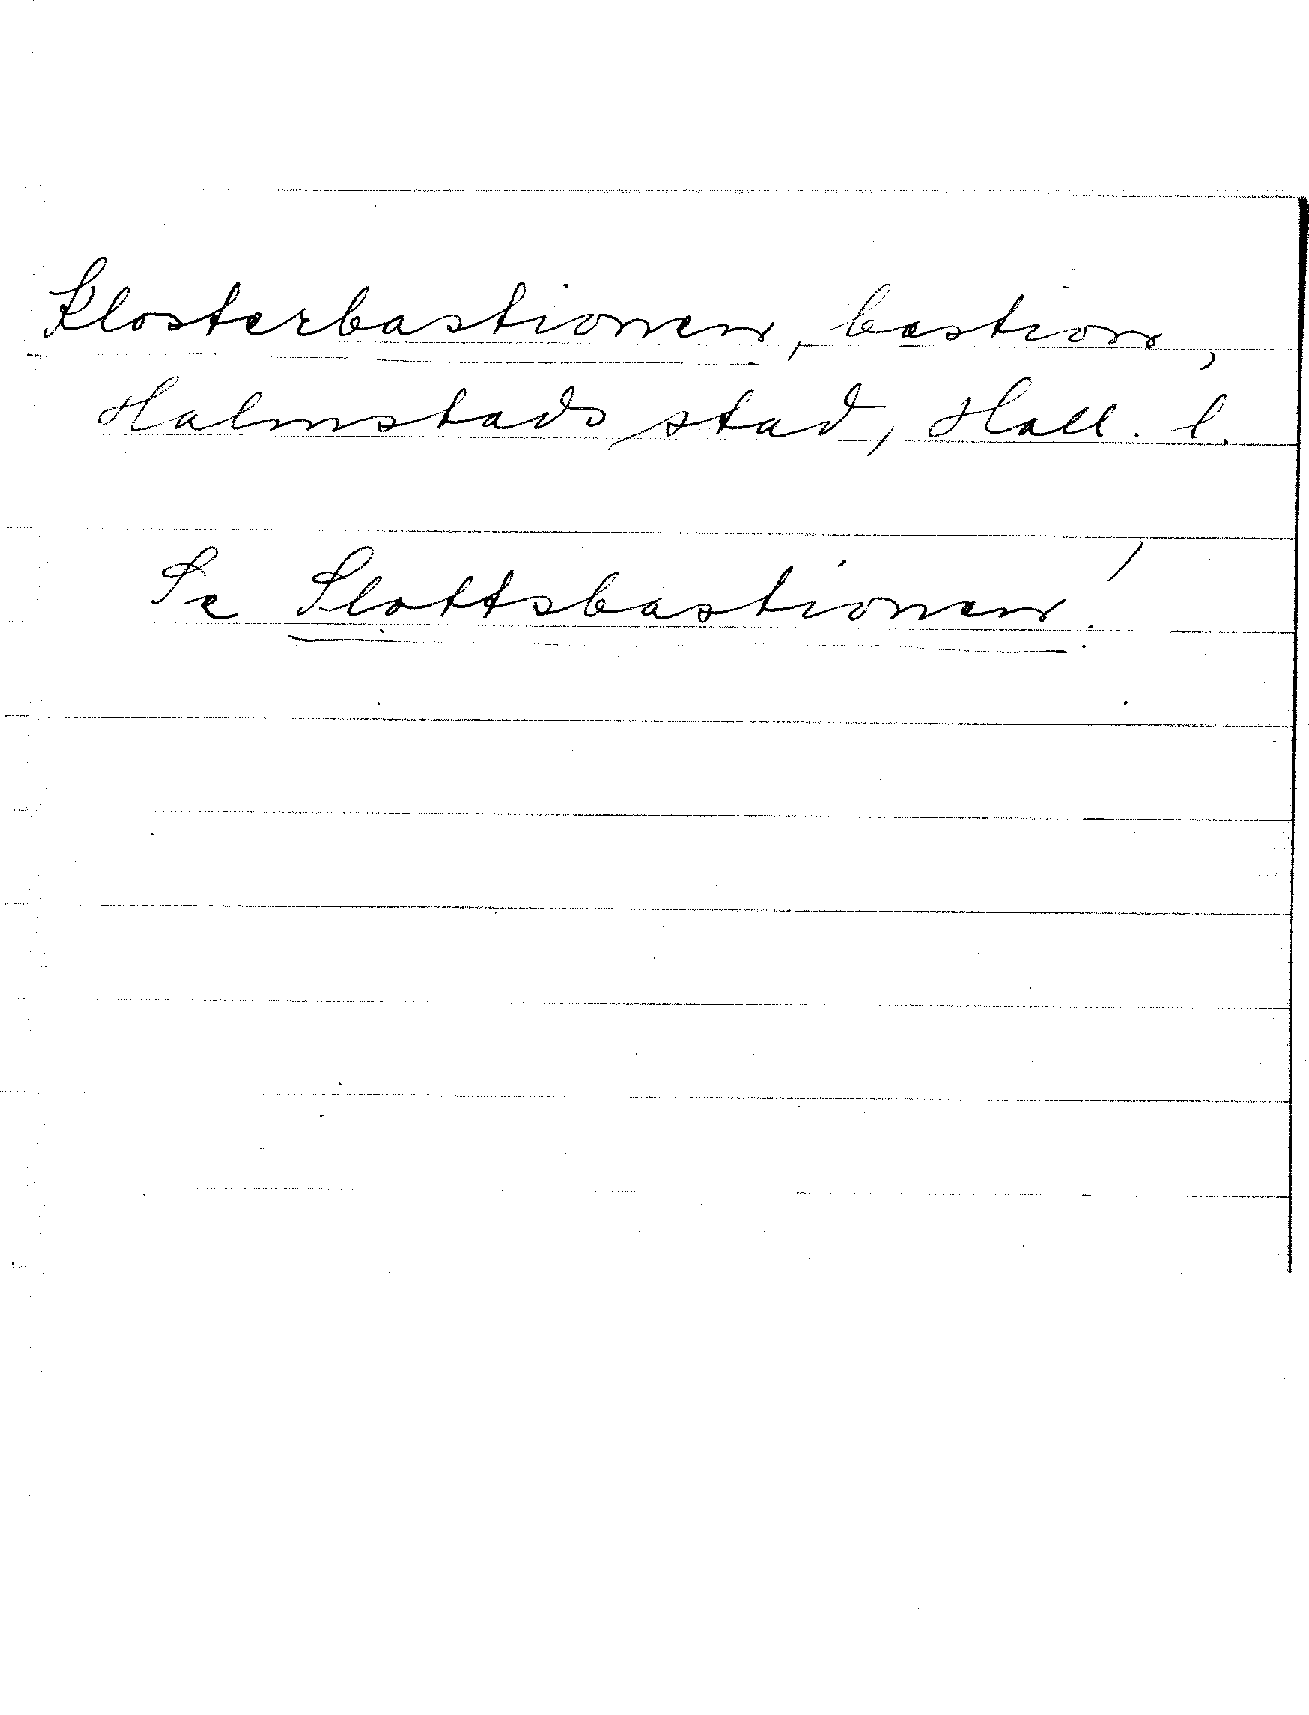 Klosterbastionen, bastion,
Halmstads stad, Hall. l.
Se Slottsbastionen!